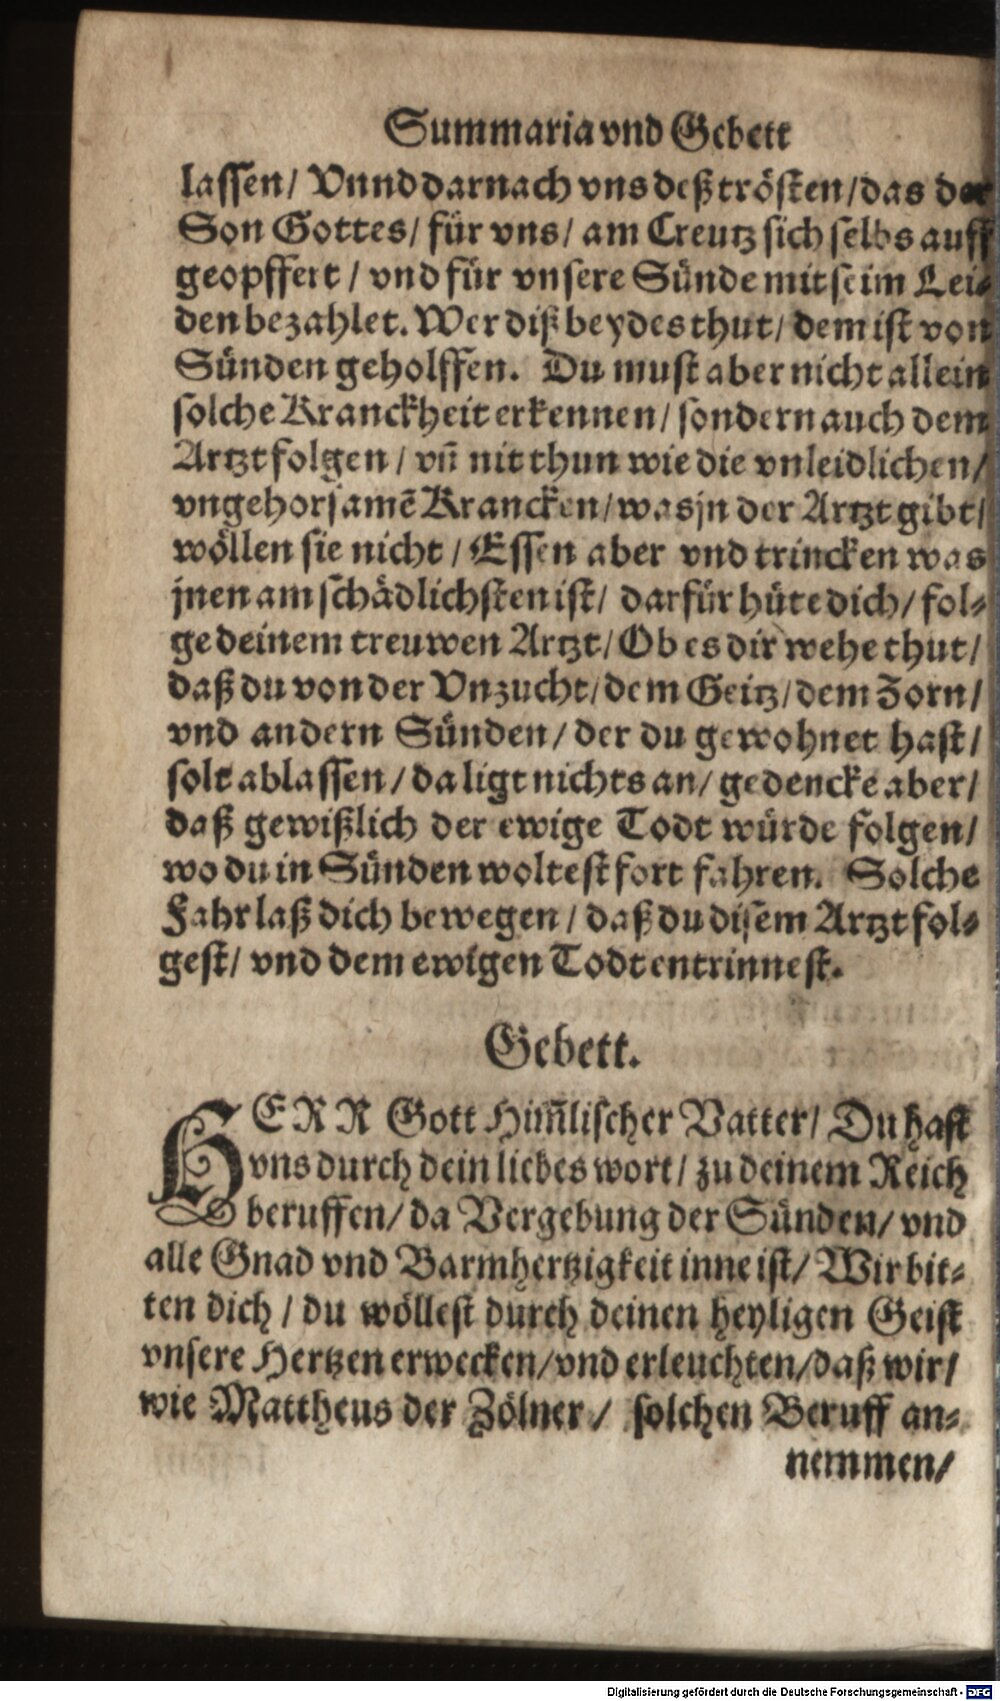 Summaria vnd Gebett
lassen/ Vnnd darnach vns deß trösten/ das der
Son Gottes/ für vns/ am Creutz sich selbs auff
geopffert / vnd für vnsere Sünde mit seim Lei-
den bezahlet. Wer diß beydes thut/ dem ist von
Sünden geholffen. Du must aber nicht allein
solche Kranckheit erkennen/ sondern auch dem
Artzt folgen / vñ nit thun wie die vnleidlichen/
vngehorsamẽ Krancken/ was jn der Artzt gibt/
wöllen sie nicht / Essen aber vnd trincken was
jnen am schädlichsten ist/ darfür hüte dich/ fol-
ge deinem treuwen Artzt/ Ob es dir wehe thut/
daß du von der Vnzucht/ dem Geitz/ dem Zorn/
vnd andern Sünden/ der du gewohnet hast/
solt ablassen/ da ligt nichts an/ gedencke aber/
daß gewißlich der ewige Todt würde folgen/
wo du in Sünden woltest fort fahren. Solche
Fahr laß dich bewegen / daß du disem Artzt fol-
gest/ vnd dem ewigen Todt entrinnest.
Gebett.
HERR Gott Him̃lischer Vatter/ Du hast
vns durch dein liebes wort/ zu deinem Reich
beruffen/ da Vergebung der Sünden/ vnd
alle Gnad vnd Barmhertzigkeit inne ist/ Wir bit-
ten dich / du wöllest durch deinen heyligen Geist
vnsere Hertzen erwecken/ vnd erleuchten/ daß wir/
wie Mattheus der Zölner / solchen Beruff an-
nemmen/
Digitalisierung gefördert durch die Deutsche Forschungsgemeinschaft - DFG